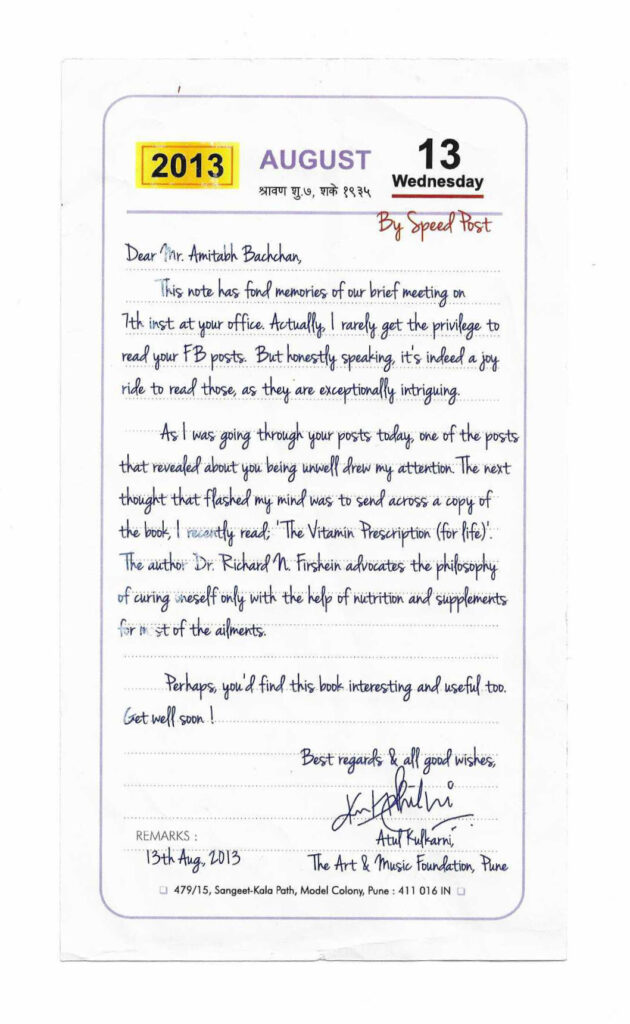 2013
AUGUST
श्रावण शु.७, शके १९३५
13
Wednesday
By Speed Post
Dear Mr. Amitabh Bachchan,
This note has fond memories of our brief meeting on
7th inst at your office. Actually, I rarely get the privilege to
read your FB posts. But honestly speaking, it's indeed a joy
ride to read those, as they are exceptionally intriguing.
As I was going through your posts today, one of the posts
that revealed about you being unwell drew my attention. The next
thought that flashed my mind was to send across a copy of
the book, I recently read; 'The Vitamin Prescription (for life)'.
The author Dr. Richard N. Firshein advocates the philosophy
of curing oneself only with the help of nutrition and supplements
for most of the ailments.
Perhaps, you'd find this book interesting and useful too.
Get well soon !
Best regards & all good wishes,
Atul Kulkarni,
The Art & Music Foundation, Pune
REMARKS :
13th Aug, 2013
479/15, Sangeet-Kala Path, Model Colony, Pune : 411 016 IN